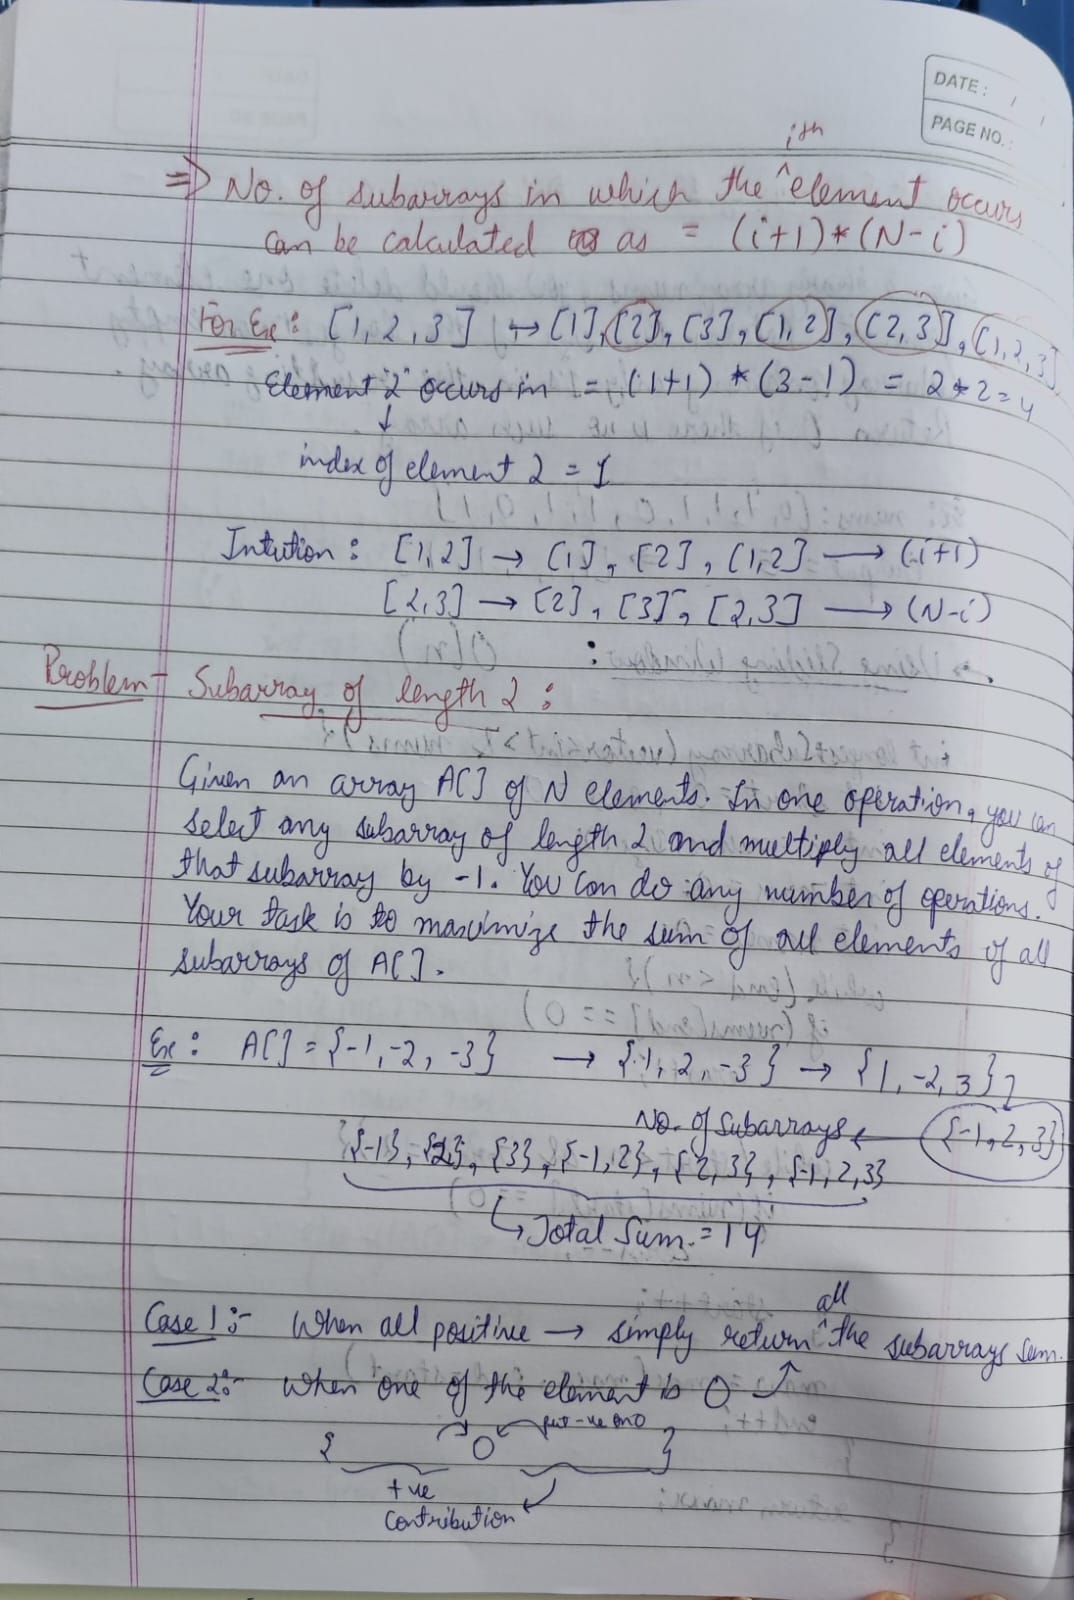 DATE :
PAGE NO. :
ith
=> No. of subarrays in which the ^ element occurs
can be calculated as = (i+1)*(N-i)
For Ex : [1, 2, 3] ↔ [1], [2], [3], [1, 2], [2, 3], [1, 2, 3]
Element "2" occurs in = (1+1) * (3-1) = 2*2=4
↓
index of element 2 = 1
Intution : [1,2] → [1], [2], [1,2] → (i+1)
[2,3] → [2], [3], [2,3] → (N-i)
Problem - Subarray of length 2 :
Given an array A[] of N elements. In one operation, you can
select any subarray of length 2 and multiply all elements of
that subarray by -1. You can do any number of operations.
Your task is to maximize the sum of all elements of all
subarrays of A[].
Ex : A[] = {-1, -2, -3} → {1, 2, -3} → {1, -2, 3}
No. of Subarrays ← {-1, 2, 3}
{-1}, {2}, {3}, {-1, 2}, {2, 3}, {-1, 2, 3}
↳ Total Sum. = 14
all
Case 1 :- When all positive → simply return ^ the subarrays sum.
Case 2 :- When one of the element is 0
put -ve on 0
{ 0 }
+ve
contribution